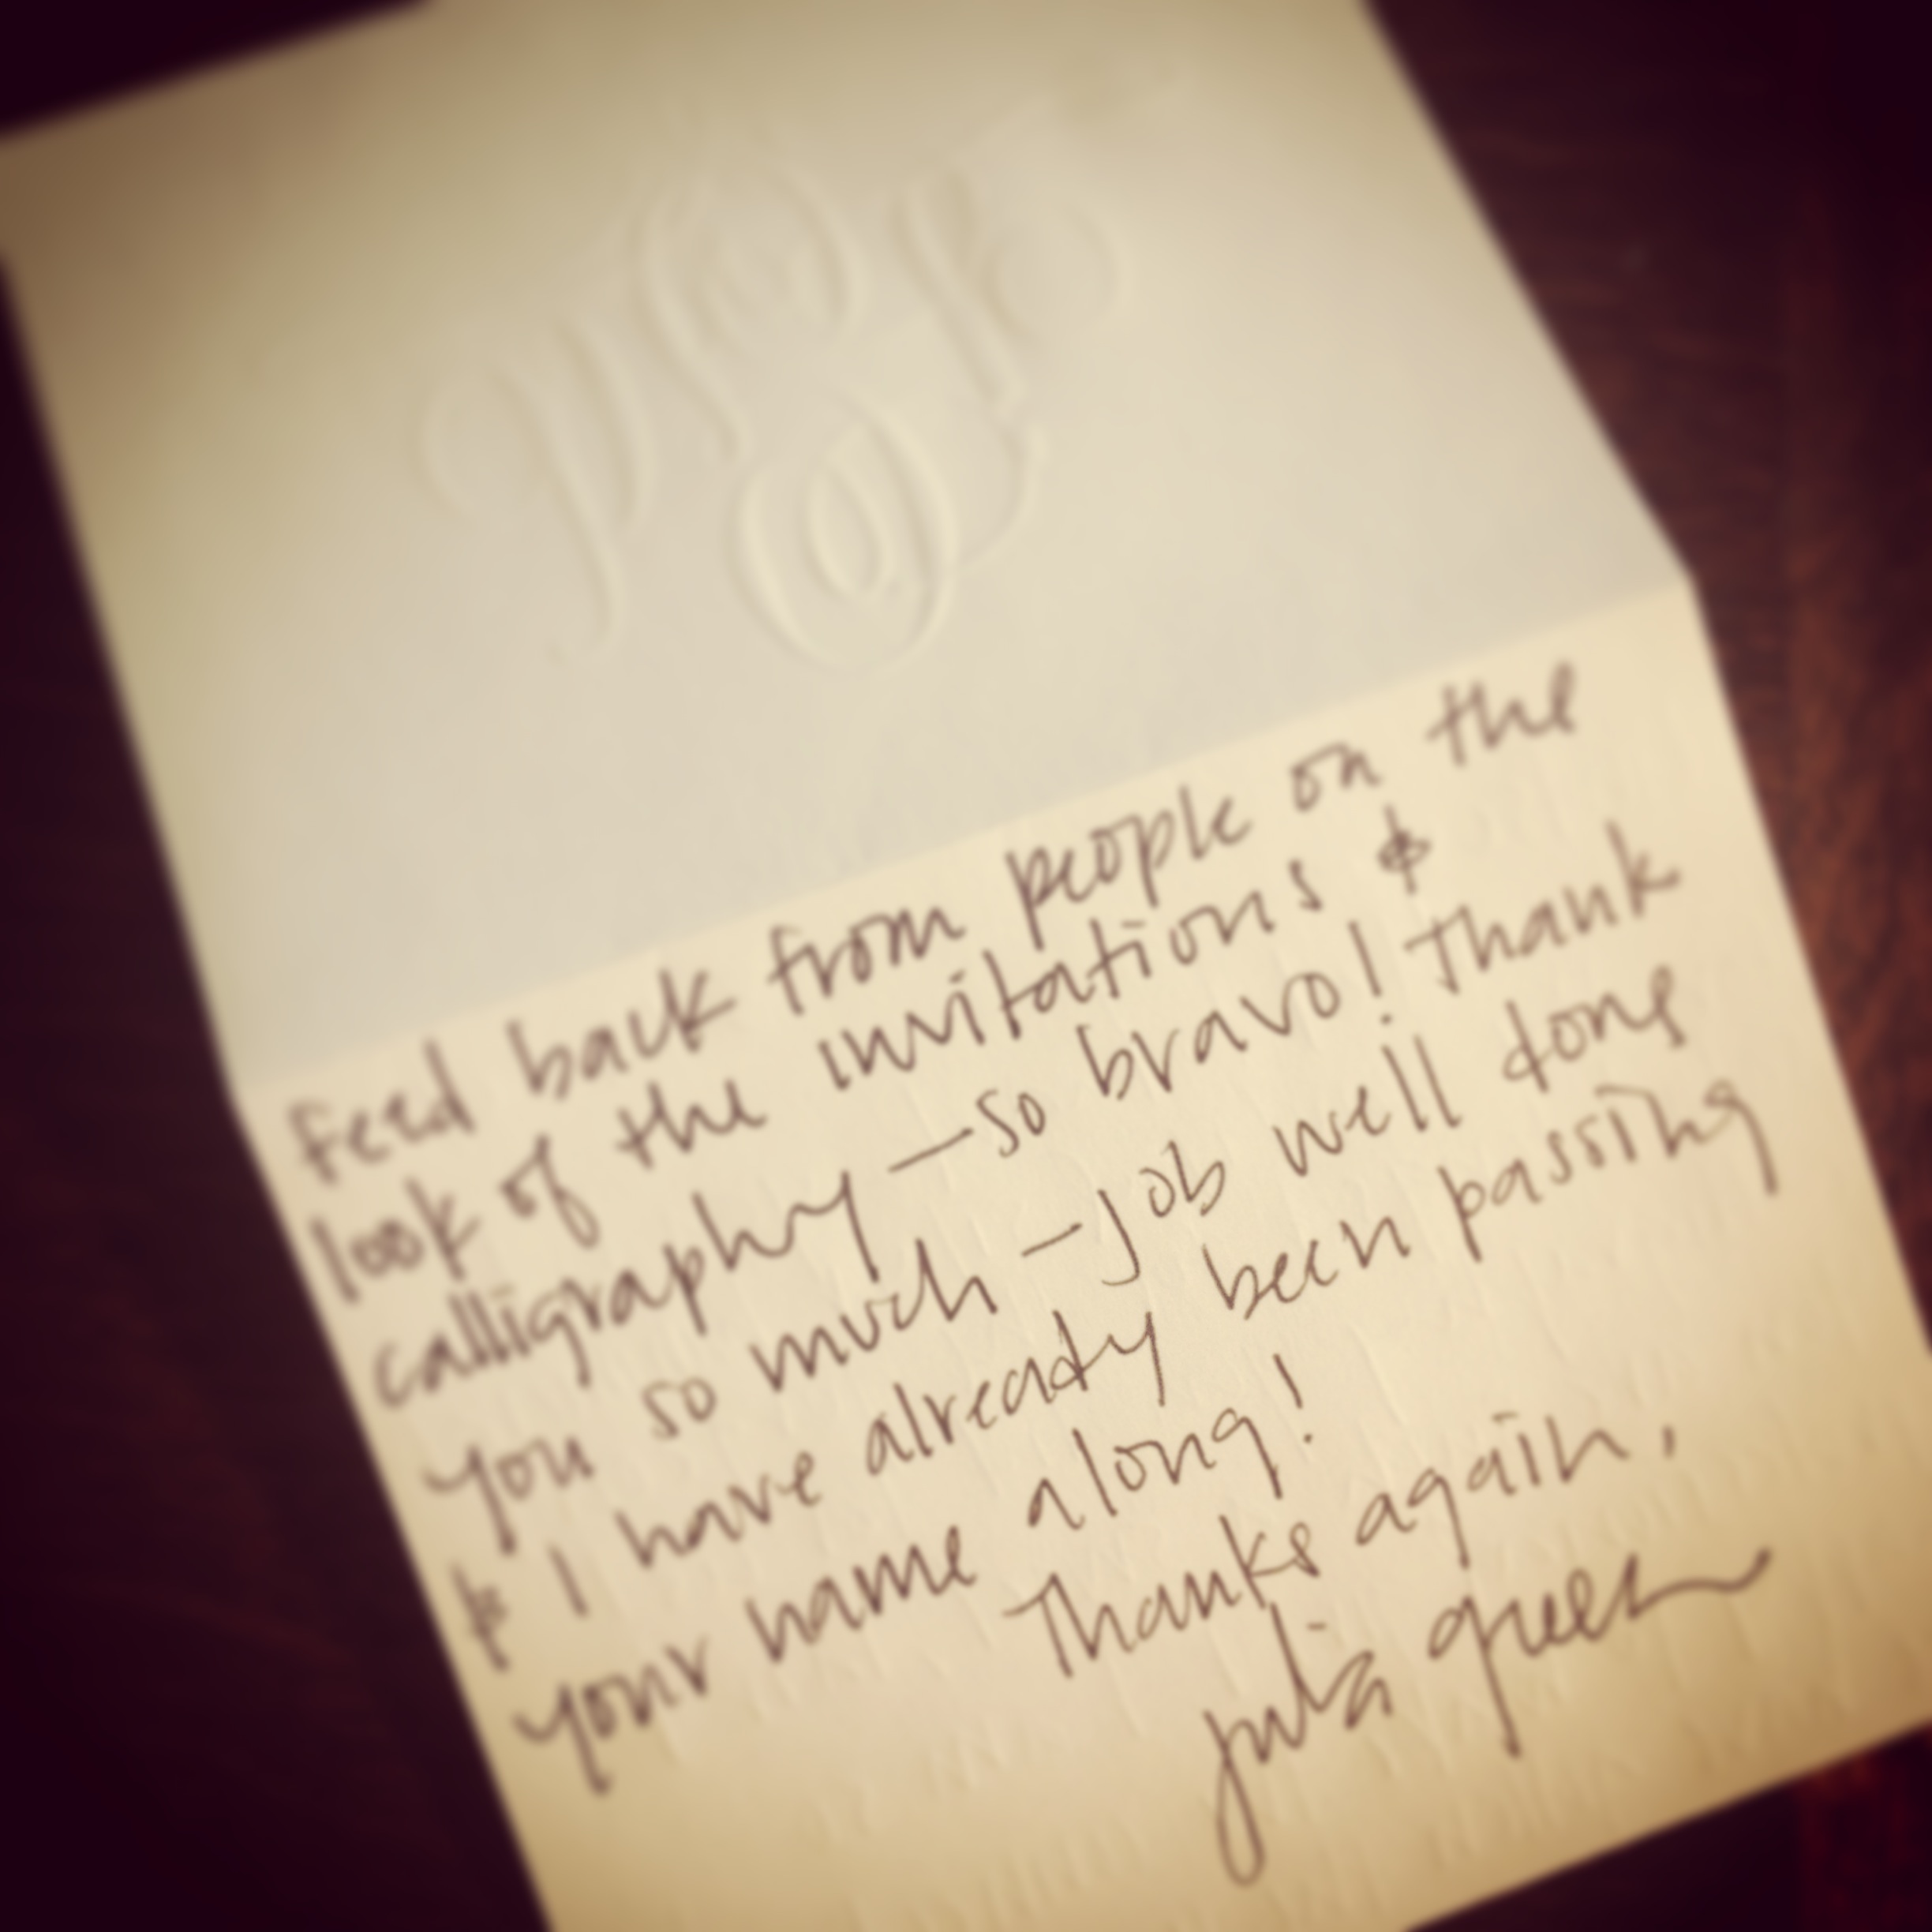 Feed back from people on the
look of the invitations &
calligraphy — so bravo! Thank
you so much — job well done
& I have already been passing
your name along!
Thanks again,
julia green